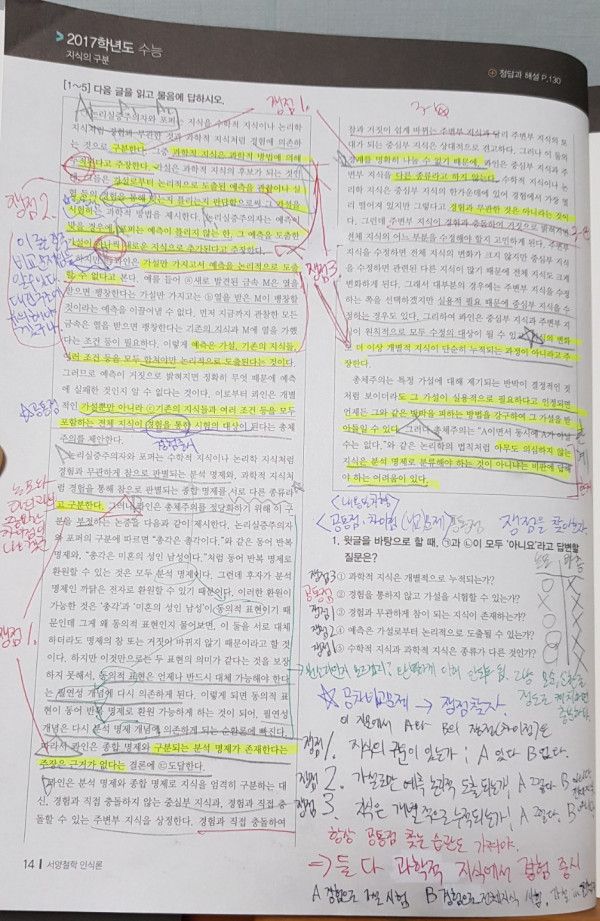 2017학년도 수능
지식의 구분
정답과 해설 P.130
[1~5] 다음 글을 읽고 물음에 답하시오.
논리실증주의자와 포퍼는 지식을 수학적 지식이나 논리학
지식처럼 경험과 무관한 것과 과학적 지식처럼 경험에 의존하
는 것으로 구분한다. 그중 과학적 지식은 과학적 방법에 의해
누적된다고 주장한다. 가설은 과학적 지식의 후보가 되는 것인
데, 그들은 가설로부터 논리적으로 도출된 예측을 관찰이나 실
험 등의 경험을 통해 맞는지 틀리는지 판단함으로써 그 가설을
시험하는 과학적 방법을 제시한다. 논리실증주의자는 예측이
맞을 경우에, 포퍼는 예측이 틀리지 않는 한, 그 예측을 도출한
가설이 하나씩 새로운 지식으로 추가된다고 주장한다.
하지만 콰인은 가설만 가지고서 예측을 논리적으로 도출
할 수 없다고 본다. 예를 들어 ⓐ새로 발견된 금속 M은 열을
받으면 팽창한다는 가설만 가지고는 ⓑ열을 받은 M이 팽창할
것이라는 예측을 이끌어낼 수 없다. 먼저 지금까지 관찰한 모든
금속은 열을 받으면 팽창한다는 기존의 지식과 M에 열을 가했
다는 조건 등이 필요하다. 이렇게 예측은 가설, 기존의 지식들,
여러 조건 등을 모두 합쳐야만 논리적으로 도출된다는 것이다.
그러므로 예측이 거짓으로 밝혀지면 정확히 무엇 때문에 예측
에 실패한 것인지 알 수 없다는 것이다. 이로부터 콰인은 개별
적인 가설뿐만 아니라 ⓒ기존의 지식들과 여러 조건 등을 모두
포함하는 전체 지식이 경험을 통한 시험의 대상이 된다는 총체
주의를 제안한다.
논리실증주의자와 포퍼는 수학적 지식이나 논리학 지식처럼
경험과 무관하게 참으로 판별되는 분석 명제와, 과학적 지식처
럼 경험을 통해 참으로 판별되는 종합 명제를 서로 다른 종류라
고 구분한다. 그러나 콰인은 총체주의를 정당화하기 위해 이 구
분을 부정하는 논증을 다음과 같이 제시한다. 논리실증주의자
와 포퍼의 구분에 따르면 “총각은 총각이다.”와 같은 동어 반복
명제와, “총각은 미혼의 성인 남성이다.”처럼 동어 반복 명제로
환원할 수 있는 것은 모두 분석 명제이다. 그런데 후자가 분석
명제인 까닭은 전자로 환원할 수 있기 때문이다. 이러한 환원이
가능한 것은 ‘총각’과 ‘미혼의 성인 남성’이 동의적 표현이기 때
문인데 그게 왜 동의적 표현인지 물어보면, 이 둘을 서로 대체
하더라도 명제의 참 또는 거짓이 바뀌지 않기 때문이라고 할 것
이다. 하지만 이것만으로는 두 표현의 의미가 같다는 것을 보장
하지 못해서, 동의적 표현은 언제나 반드시 대체 가능해야 한다
는 필연성 개념에 다시 의존하게 된다. 이렇게 되면 동의적 표
현이 동어 반복 명제로 환원 가능하게 하는 것이 되어, 필연성
개념은 다시 분석 명제 개념에 의존하게 되는 순환론에 빠진다.
따라서 콰인은 종합 명제와 구분되는 분석 명제가 존재한다는
주장은 근거가 없다는 결론에 ㉢도달한다.
콰인은 분석 명제와 종합 명제로 지식을 엄격히 구분하는 대
신, 경험과 직접 충돌하지 않는 중심부 지식과, 경험과 직접 충
돌할 수 있는 주변부 지식을 상정한다. 경험과 직접 충돌하여
14 | 서양철학 인식론
참과 거짓이 쉽게 바뀌는 주변부 지식과 달리 주변부 지식의 토
대가 되는 중심부 지식은 상대적으로 견고하다. 그러나 이 둘의
경계를 명확히 나눌 수 없기 때문에, 콰인은 중심부 지식과 주
변부 지식을 다른 종류라고 하지 않는다. 수학적 지식이나 논
리학 지식은 중심부 지식의 한가운데에 있어 경험에서 가장 멀
리 떨어져 있지만 그렇다고 경험과 무관한 것은 아니라는 것이
다. 그런데 주변부 지식이 경험과 충돌하여 거짓으로 밝혀지면
전체 지식의 어느 부분을 수정해야 할지 고민하게 된다. 주변부
지식을 수정하면 전체 지식의 변화가 크지 않지만 중심부 지식
을 수정하면 관련된 다른 지식이 많기 때문에 전체 지식도 크게
변화하게 된다. 그래서 대부분의 경우에는 주변부 지식을 수정
하는 쪽을 선택하겠지만 실용적 필요 때문에 중심부 지식을 수
정하는 경우도 있다. 그리하여 콰인은 중심부 지식과 주변부 지
식이 원칙적으로 모두 수정의 대상이 될 수 있고, 지식의 변화
도 더 이상 개별적 지식이 단순히 누적되는 과정이 아니라고 주
장한다.
총체주의는 특정 가설에 대해 제기되는 반박이 결정적인 것
처럼 보이더라도 그 가설이 실용적으로 필요하다고 인정되면
언제든 그와 같은 반박을 피하는 방법을 강구하여 그 가설을 받
아들일 수 있다. 그러나 총체주의는 “A이면서 동시에 A가 아닐
수는 없다.”와 같은 논리학의 법칙처럼 아무도 의심하지 않는
지식은 분석 명제로 분류해야 하는 것이 아니냐는 비판에 답해
야 하는 어려움이 있다.
1. 윗글을 바탕으로 할 때, ㉠과 ㉡이 모두 ‘아니요’라고 답변할
질문은?
① 과학적 지식은 개별적으로 누적되는가?
② 경험을 통하지 않고 가설을 시험할 수 있는가?
③ 경험과 무관하게 참이 되는 지식이 존재하는가?
④ 예측은 가설로부터 논리적으로 도출될 수 있는가?
⑤ 수학적 지식과 과학적 지식은 종류가 다른 것인가?
쟁점1.
쟁점2.
쟁점3
공통점
쟁점을 찾아라
쟁점3
공통점
쟁점1
쟁점2
쟁점1
☆ 공차비교문제 → 쟁점찾자.
이 지문에서 A와 B의 쟁점(차이점)은
쟁점1. 지식의 구분이 있는가; A 있다 B 없다.
쟁점2. 가설로만 예측 논리적 도출 되는가; A 그렇다 B
쟁점3. 지식은 개별적으로 누적되는가; A 그렇다. B
항상 공통점 찾는 습관도 가져야.
⇒ 둘 다 과학적 지식에서 경험 중시
A 경험으로 가설 시험, B 경험으로 전체지식 시험,